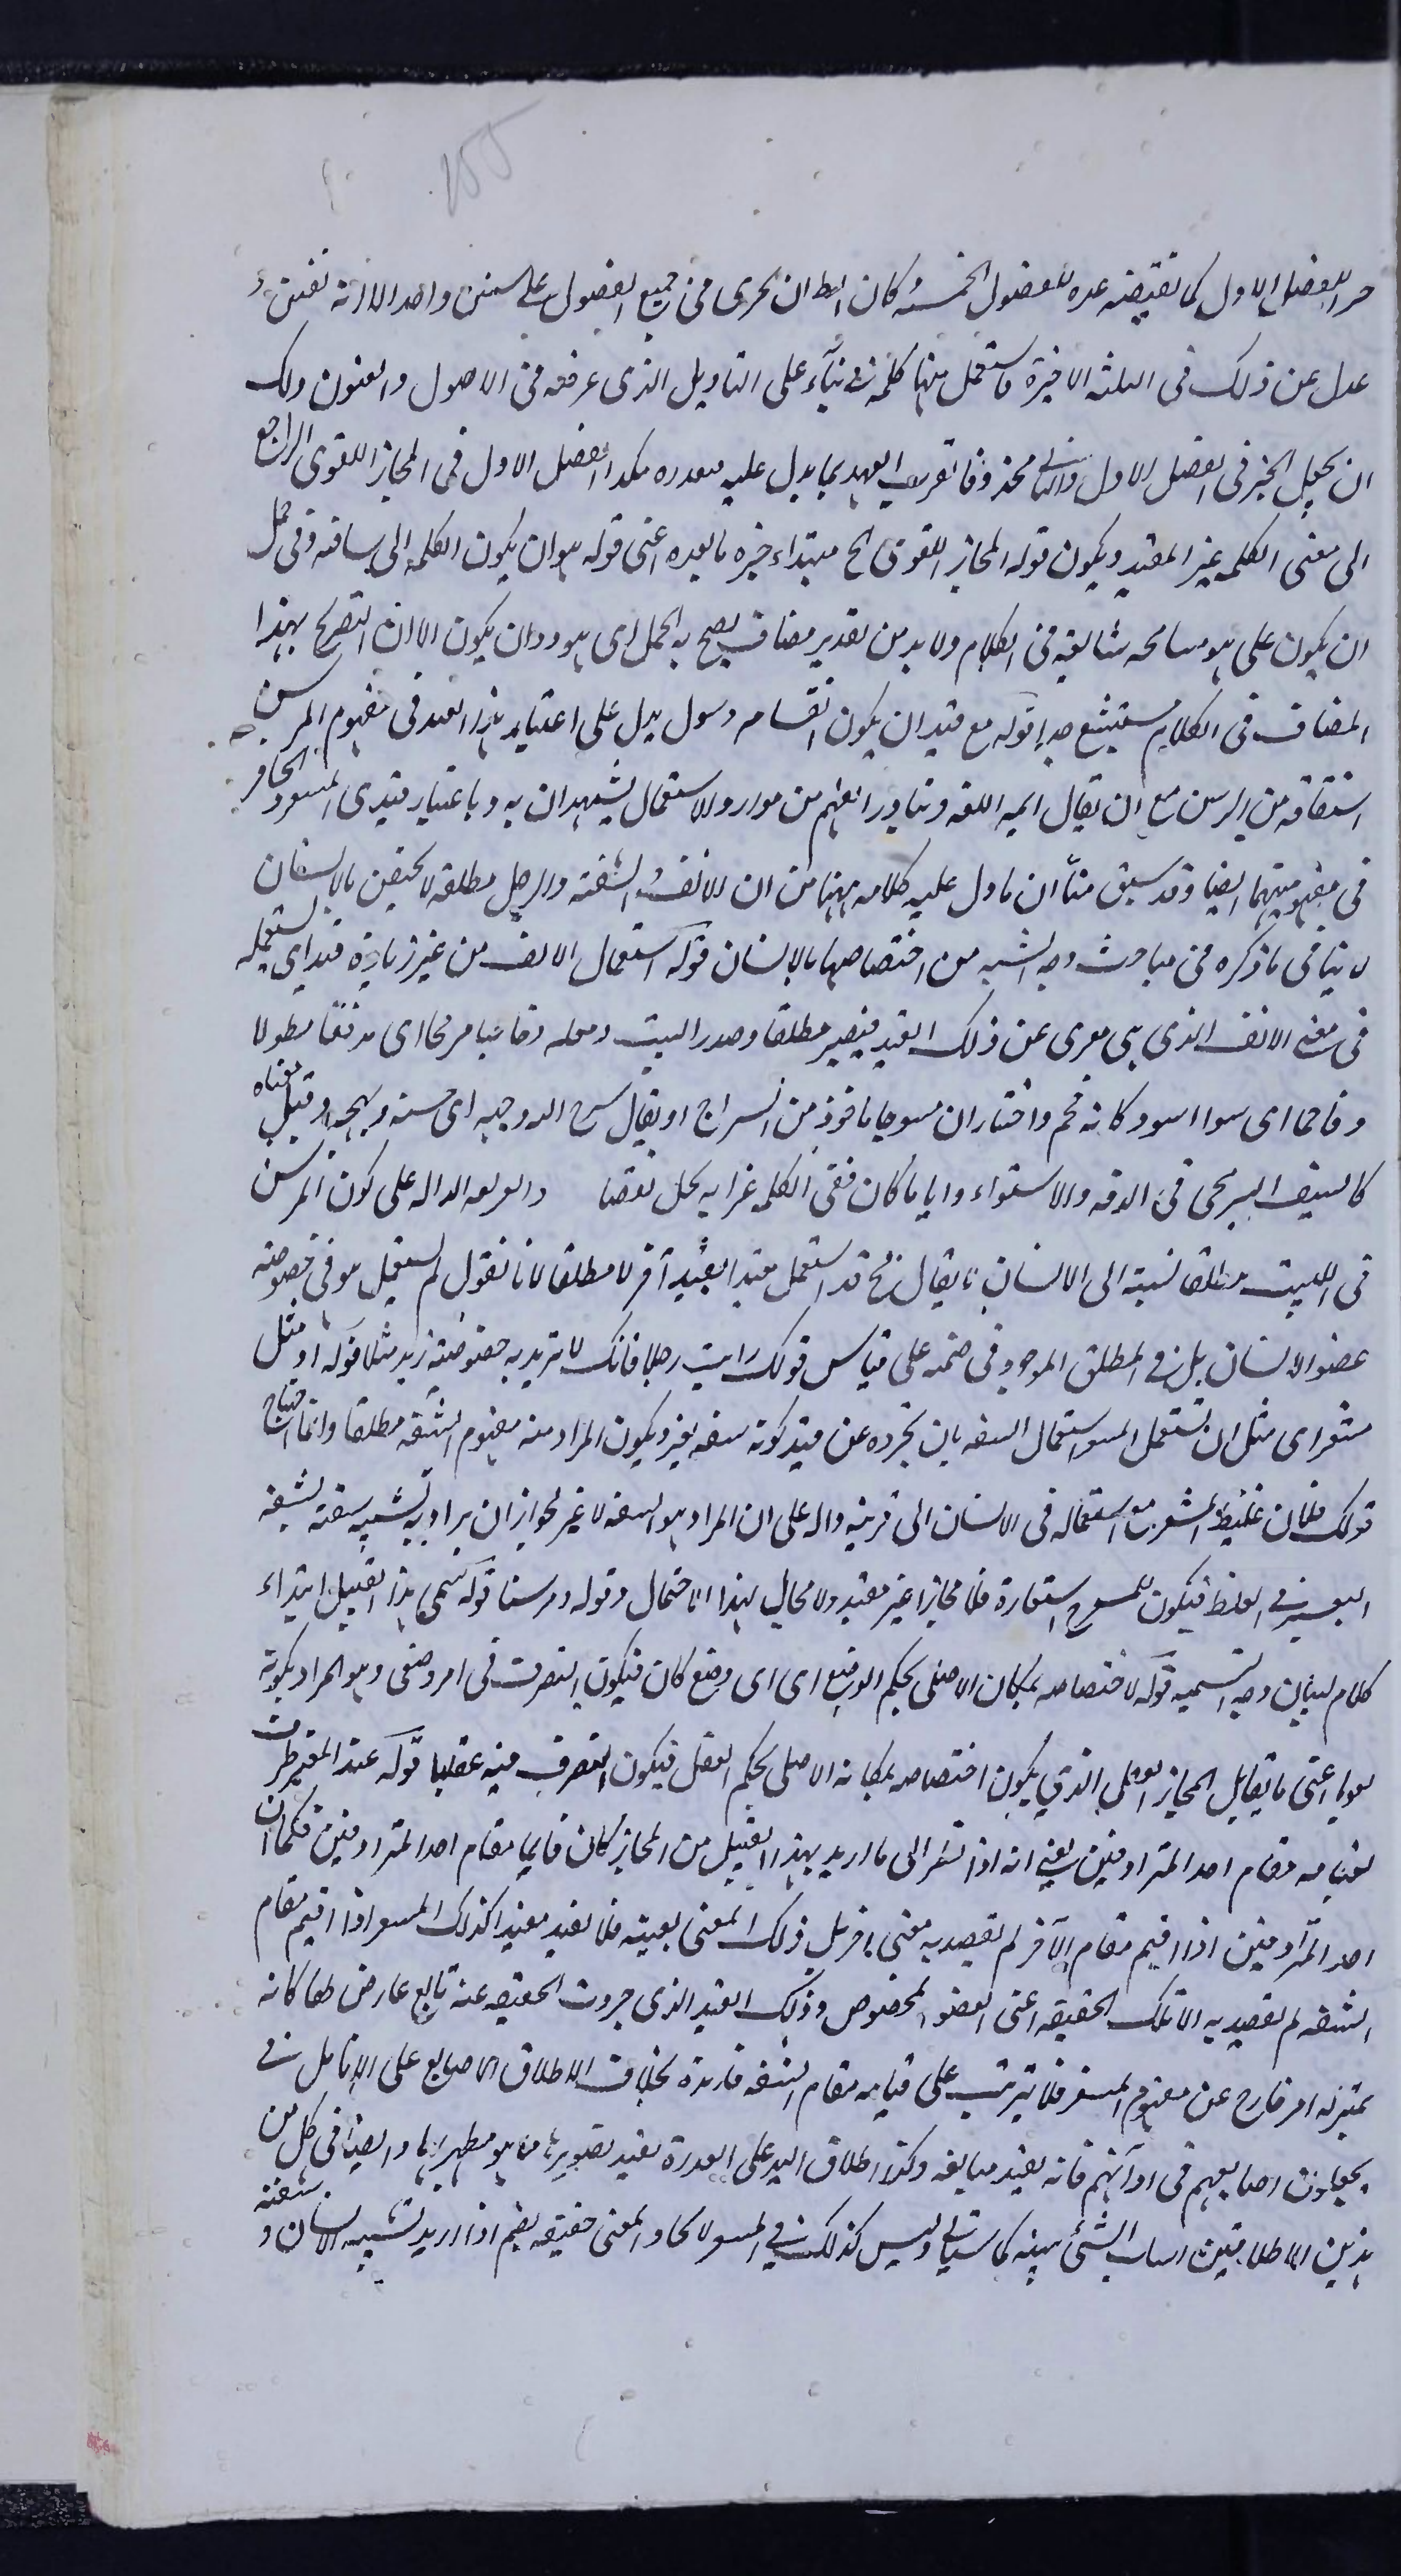 للفصل الاول كما تقتضيه عده للفصول الخمسة كان ان يجرى فى جميع الفصول على سنن واحد الا انه تفنن و
عدل عن ذلك فى الثلثة الاخيرة فاستعمل فيها كلمة فى بناء على التاويل الذى عرفته فى الاصول والفنون ولك
ان يجعل الخبر فى الفصل الاول والثانى محذوفا تعريف العهد بما يدل عليه هكذا الفصل الاول فى المجاز اللغوى الراجع
الى معنى الكلمة غير المفيد ويكون قوله المجاز اللغوى الخ مبتداء خبره ما بعده اعنى قوله هو ان يكون الكلمة الى ساقته وفى حمل
ان يكون على هو مسامحه شائعة فى الكلام ولا بد من تقدير مضاف يصح به الحمل اى هو ذو ان يكون الا ان التصريح بهذا
المضاف فى الكلام مستبشع جدا قوله مع قيد ان يكون انف مرسون يدل على اعتبار هذا القيد فى مفهوم المرسن
اشتقاقه من الرسن مع ان يقال ائمة اللغة وتبادر الفهم من موارد الاستعمال يشهدان به وباعتبار قيدى المشفر والحافر
فى مفهوميهما ايضا وقد سبق منا ان ما دل عليه كلامه ههنا من ان الانف والشفة والرجل مطلقة لا يختص بالانسان
لا ينافى ما ذكره فى مباحث وجه الشبه من اختصاصها بالانسان قوله استعمال الانف من غير زيادة قيد اى يستعمله
فى معنى الانف الذى هى معرى عن ذلك القيد فيصير مطلقا وصدر البيت ومقلة وحاجبا مزججا اى مدققا مطولا
وفاحما اى شعرا اسود كانه فحم واختار ان مسرجا ماخوذ من السراج او يقال سرج الله وجهه اى حسنه وبهجه وقيل معناه
كالسيف السريجى فى الدقة والاستواء وايا ما كان ففى الكلمة غرابة يخل بفصا والقرينة الدالة على كون المرسن
فى البيت مطلقا نسبته الى الانسان لا يقال فح قد استعمل مقيدا بقيد آخر لا مطلقا لانا نقول لم يستعمل هو فى خصوصية
عضو الانسان بل فى المطلق الموجود فى ضمنه على قياس قولك رايت رجلا فانك لا تريد به خصوصية زيد مثلا قوله او مثل
مشفر اى مثل ان تستعمل المشفر استعمال الشفة بان تجرده عن قيد كونه شفة بعير ويكون المراد منه مفهوم الشفة مطلقا وانما احتاج
قولك فلان غليظ المشفر مع استعماله فى الانسان الى قرينة دالة على ان المراد هو الشفة لا غير لجواز ان يراد به تشبيه شفته بشفة
البعير فى الغلظ فيكون المشفر استعارة فلا مجازا غير مفيد ولا مجال لهذا الاحتمال وقوله ومرسنا قوله سمى هذا القبيل ابتداء
كلام لبيان وجه التسمية قوله لاختصاصه بمكان الاصلى بحكم الوضع اى اى وضع كان فيكون التصرف فى امر وضعى وهو المراد بكونه
لغويا اعنى ما يقابل المجاز العقلى الذى يكون اختصاصه بمكانه الاصلى بحكم العقل فيكون التصرف فيه عقليا قوله عند المصير طرف
لقيامه مقام احد المترادفين يعنى انه اذا نظر الى ما اريد بهذا القبيل من المجاز كان قائما مقام احد المترادفين فكما ان
احد المترادفين اذا اقيم مقام الآخر لم يقصد به معنى آخر بل ذلك المعنى بعينه فلا يفيد مفيدا كذلك المشفر اذا اقيم مقام
الشفة لم يقصد به الا تلك الحقيقة اعنى العضو المخصوص وذلك القيد الذى جردت الحقيقة عنه تابع عارض لها كانه
بمنزلة امر خارج عن مفهوم المشفر فلا يترتب على قيامه مقام الشفة فائدة بخلاف اطلاق الاصابع على الانامل فى
يجعلون اصابعهم فى آذانهم فانه يفيد مبالغة وكذا اطلاق اليد على القدرة يفيد تصويرها بما هو مظهر لها وايضا فى كل من
هذين الاطلاقين اثبات الشئ ببينة كما سياتى وليس كذلك فى المشفر لاتحاد المعنى حقيقة نعم اذا اريد تشبيه الانسان و شفته